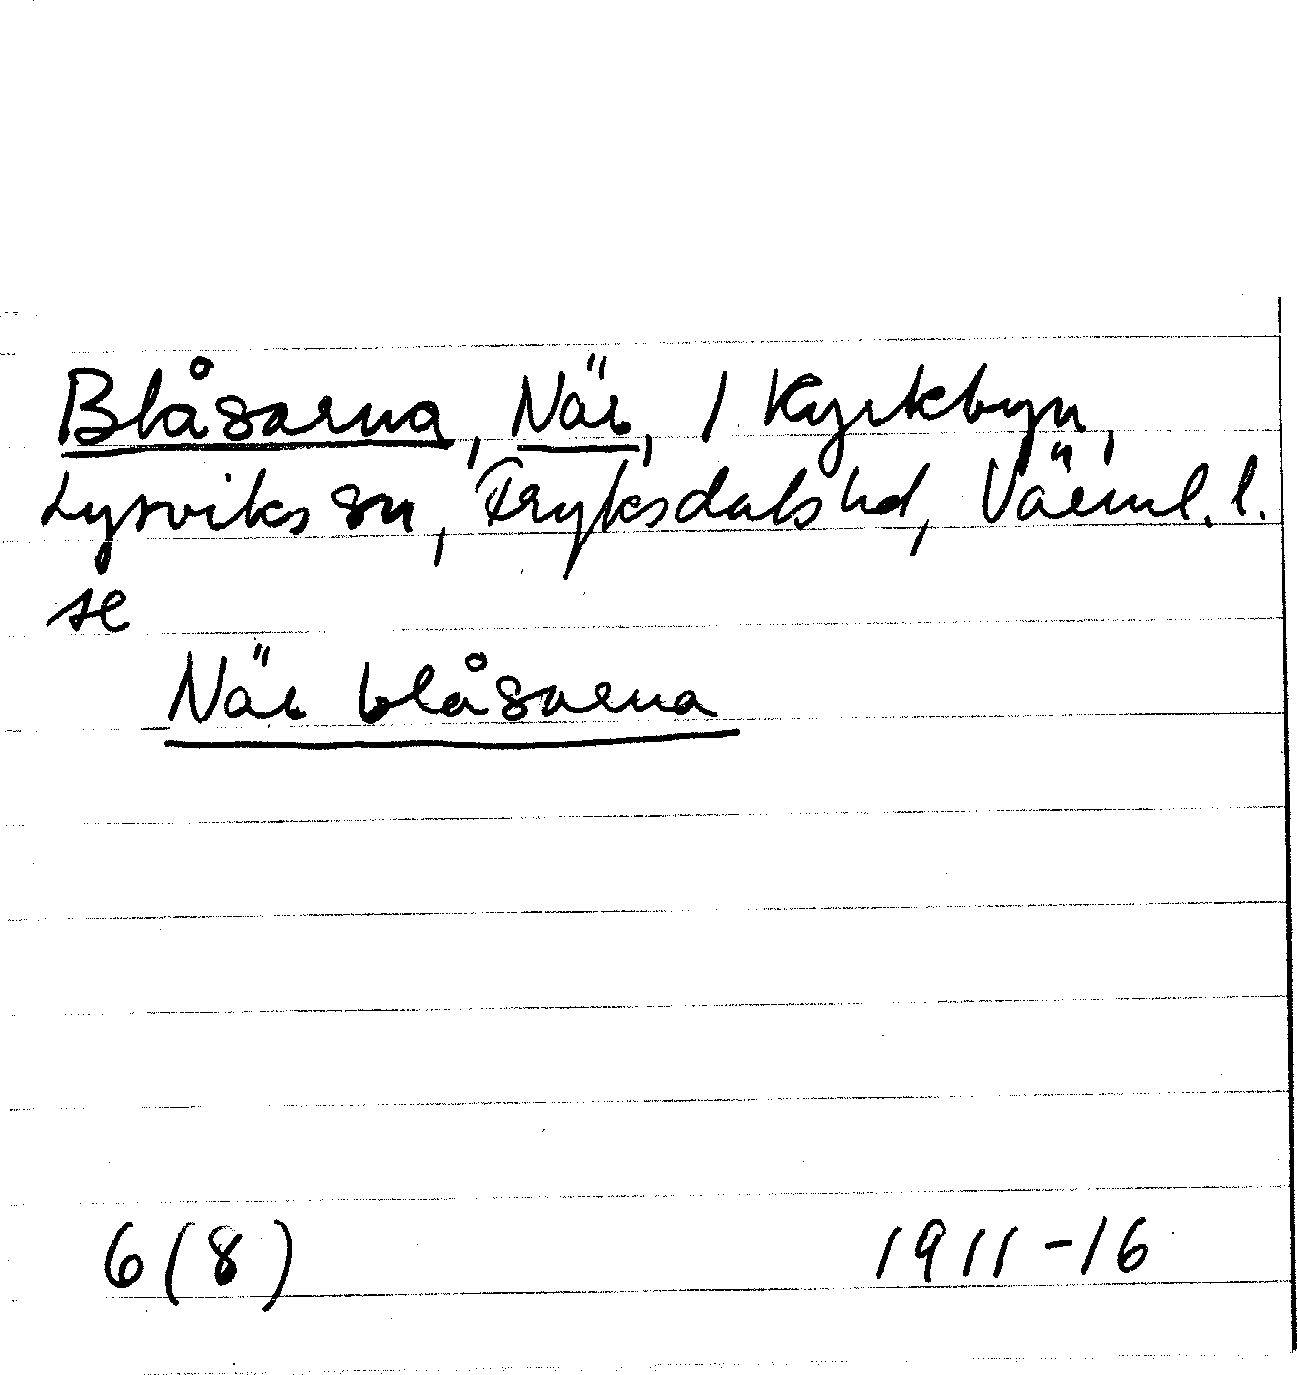 Blåsarna, När, / Kyrkbyn,
Lysviks sn, Fryksdals hd, Värml. l.
se
När blåsarna
6(8) 1911-16